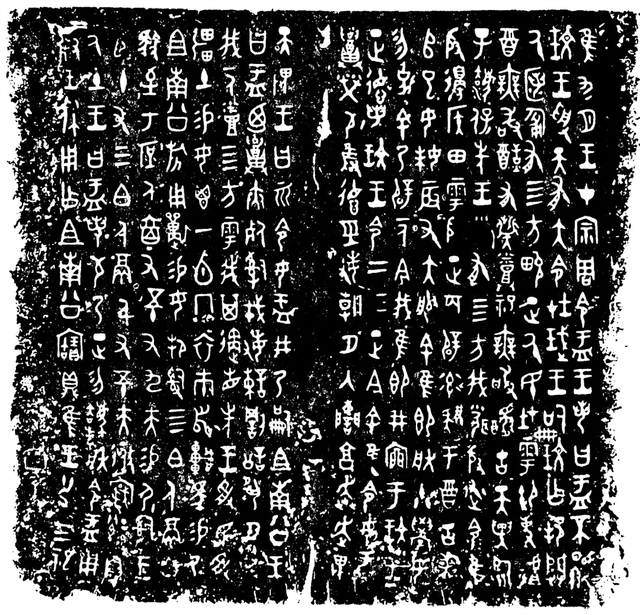 隹九月王才宗周令盂王若曰盂不顯
玟王受天有大令在珷王嗣玟乍邦闢
厥匿匍有四方畯正厥民在雩御事䖒
酉無敢酖有髭烝祀無敢醻古天異臨
子灋保先王□有四方我聞殷述令隹
殷邊侯田雩殷正百辟率肄于酉古喪
師已女妹辰又大服余隹即朕小學女
勿剋余乃辟一人今我隹即井㐭于玟王
正德若玟王令二三正今余隹令女盂
召榮敬雝德巠敏朝夕入讕享奔走畏
天畏王曰而令女盂井乃嗣且南公王
曰盂廼召夾死司戎敏諫罰訟夙夕召
我一人烝四方雩我其遹省先王受民受
疆土易女鬯一卣冂衣巿舄車馬易乃
且南公旂用狩易女邦司四白人鬲自
馭至于庶人六百又五十又九夫易尸司王
臣十又三白人鬲千又五十夫□□遷自
厥土王曰盂若敬乃正勿灋朕令盂用
對王休用乍且南公寶鼎隹王廿又三祀